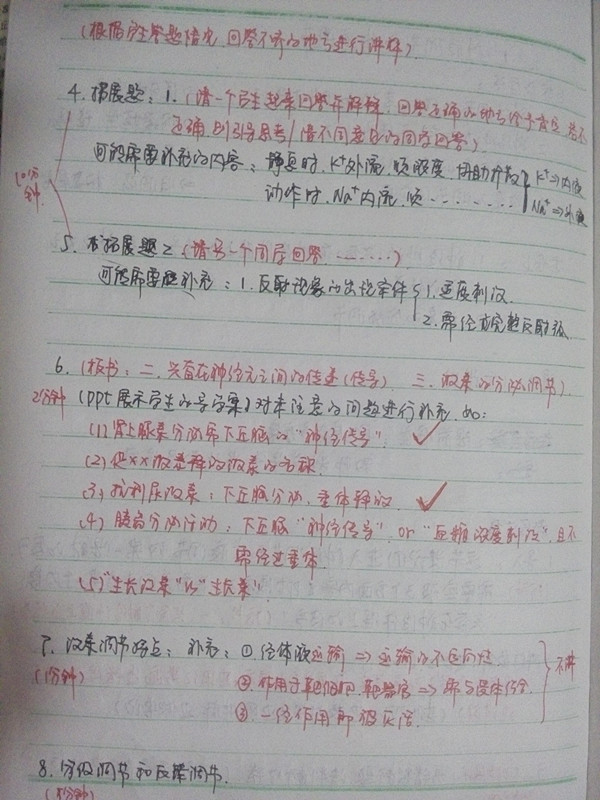 (根据学生答题情况,回答不好的地方进行讲解)
4. 拓展题:1.(请一个学生起来回答并解释,回答正确的地方给予肯定,若不
正确则引导思考/请不同意见的同学回答)
可能需要补充的内容:静息时,K⁺外流,顺浓度,协助扩散 K⁺⇒内液
动作时,Na⁺内流,顺........ Na⁺⇒外液
10分钟
5. 拓展题2(请另一个同学回答.......)
可能需要补充:1.反射现象的出现条件 1.适度刺激.
2.需经过完整反射弧
6.(板书:二.兴奋在神经元之间的传递(传导) 三.激素的分泌调节)
2分钟 (PPT展示学生的导学案)对未注意的问题进行补充.如:
(1)肾上腺素分泌需下丘脑的"神经传导".
(2)促××激素释放激素的名称.
(3)抗利尿激素:下丘脑分泌,垂体释放.
(4)胰岛分泌活动:下丘脑"神经传导"or"血糖浓度刺激",且不
需经过垂体.
(5)"生长激素"vs"生长素"
7.激素调节特点:补充:①经体液运输⇒运输的不定向性
(1分钟) ②作用于靶细胞、靶器官⇒需与受体结合 不讲
③一经作用即被灭活.
8.分级调节和反馈调节.
分钟)